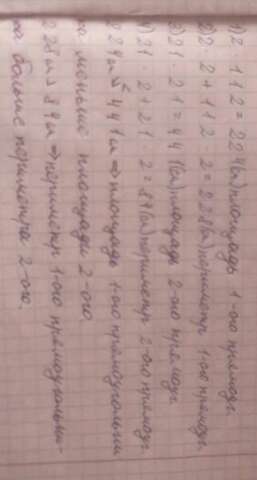 1) 2 · 112 = 224(м) площадь 1-ого прямоуг.
2) 2 · 2 + 112 · 2 = 228(м) периметр 1-ого прямоуг.
3) 21 · 21 = 441(м) площадь 2-ого прямоуг.
4) 21 · 2 + 21 · 2 = 84(м) периметр 2-ого прямоуг.
224м < 441м ⇒ площадь 1-ого прямоугольни
ка меньше площади 2-ого.
228м > 84м ⇒ периметр 1-ого прямоугольни-
ка больше периметра 2-ого.